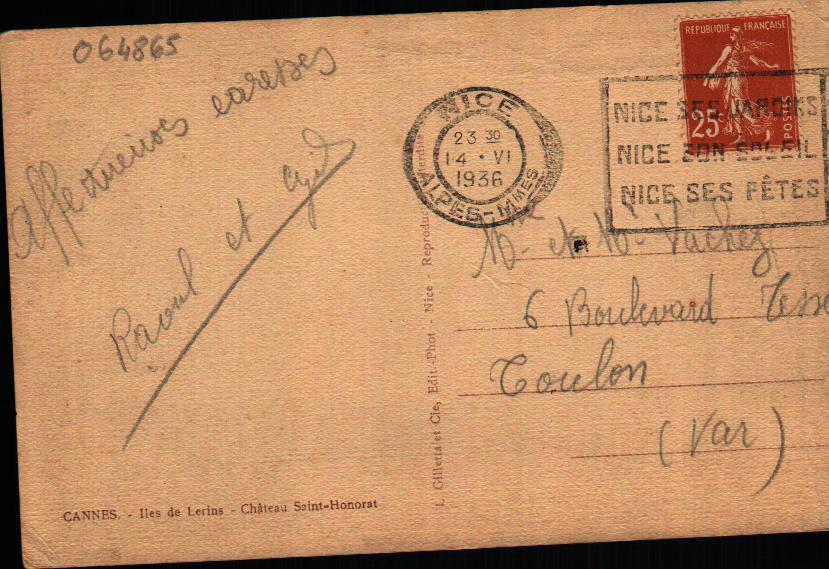 064865
Affectueuses caresses
Raoul et
CANNES. - Iles de Lerins - Château Saint-Honorat
L. Gilletta et Cie, Edit.-Phot - Nice Reproduc interdite
NICE
23 30
14 • VI
1936
ALPES-MMES
REPUBLIQUE FRANÇAISE
25
POSTES
NICE SES JARDINS
NICE SON SOLEIL
NICE SES FÊTES
Mme et Mr Vachez
6 Boulevard
Toulon
(Var)